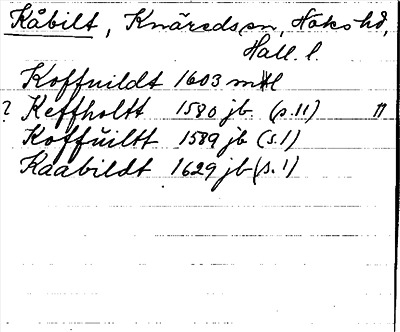 Kåbilt, Knäreds sn, Höks hd,
Hall. l.
Koffuildt 1603 mtl
? Keffholtt 1580 jb. (s.11) n
Koffŭiltt 1589 jb (s.1)
Kaabildt 1629 jb (s.1)